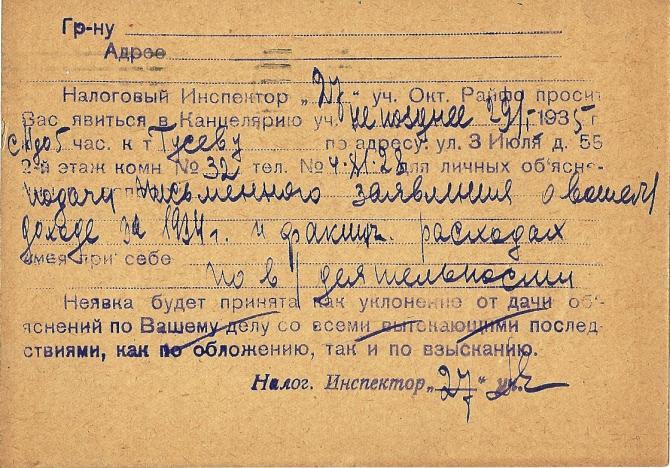 Гр-ну
Адрес
Налоговый Инспектор „27“ уч. Окт. Райфо просит
Вас явиться в Канцелярию уч. не позднее 29/I-1935 г.
с 1 до 5 час. к т Гусеву по адресу: ул. 3 Июля д. 55
2-й этаж комн № 32 тел. № 4-81-28 для личных об'ясне-
подачи письменного заявления о вашем
доходе за 1934 г. и фактич. расходах
имея при себе
по в/деятельности
Неявка будет принята как уклонение от дачи об'-
яснений по Вашему делу со всеми вытекающими послед-
ствиями, как по обложению, так и по взысканию.
Налог. Инспектор „27“ уч.